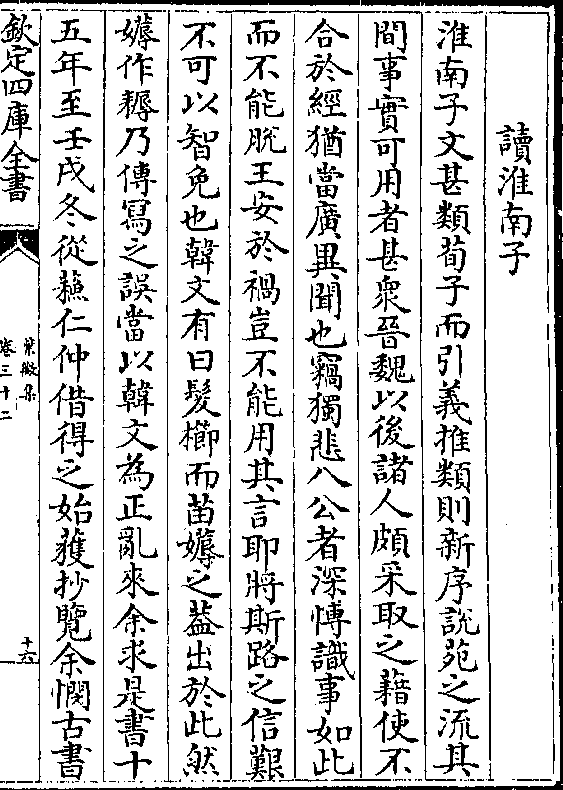 讀淮南子
淮南子文甚類荀子而引義推類則新序說苑之流其
間事實可用者甚衆晉魏以後諸人頗采取之藉使不
合於經猶當廣異聞也竊獨悲八公者深愽識事如此
而不能脫王安於禍豈不能用其言耶將斯路之信艱
不可以智免也韓文有曰髮櫛而苗㜸之蓋出於此然
㜸作耨乃傳寫之誤當以韓文為正亂來余求是書十
五年至壬戌冬從蘓仁仲借得之始獲抄覽余憫古書
欽定四庫全書
紫微集
卷三十二
十六